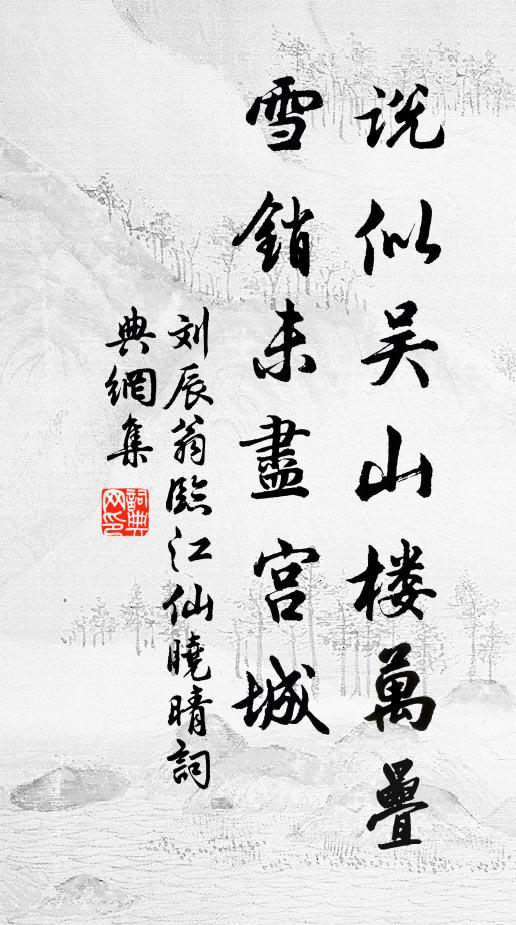 说似吴山楼萬疊
雪銷未盡宫城
刘辰翁臨江仙曉晴詞
典網集
詞典网印